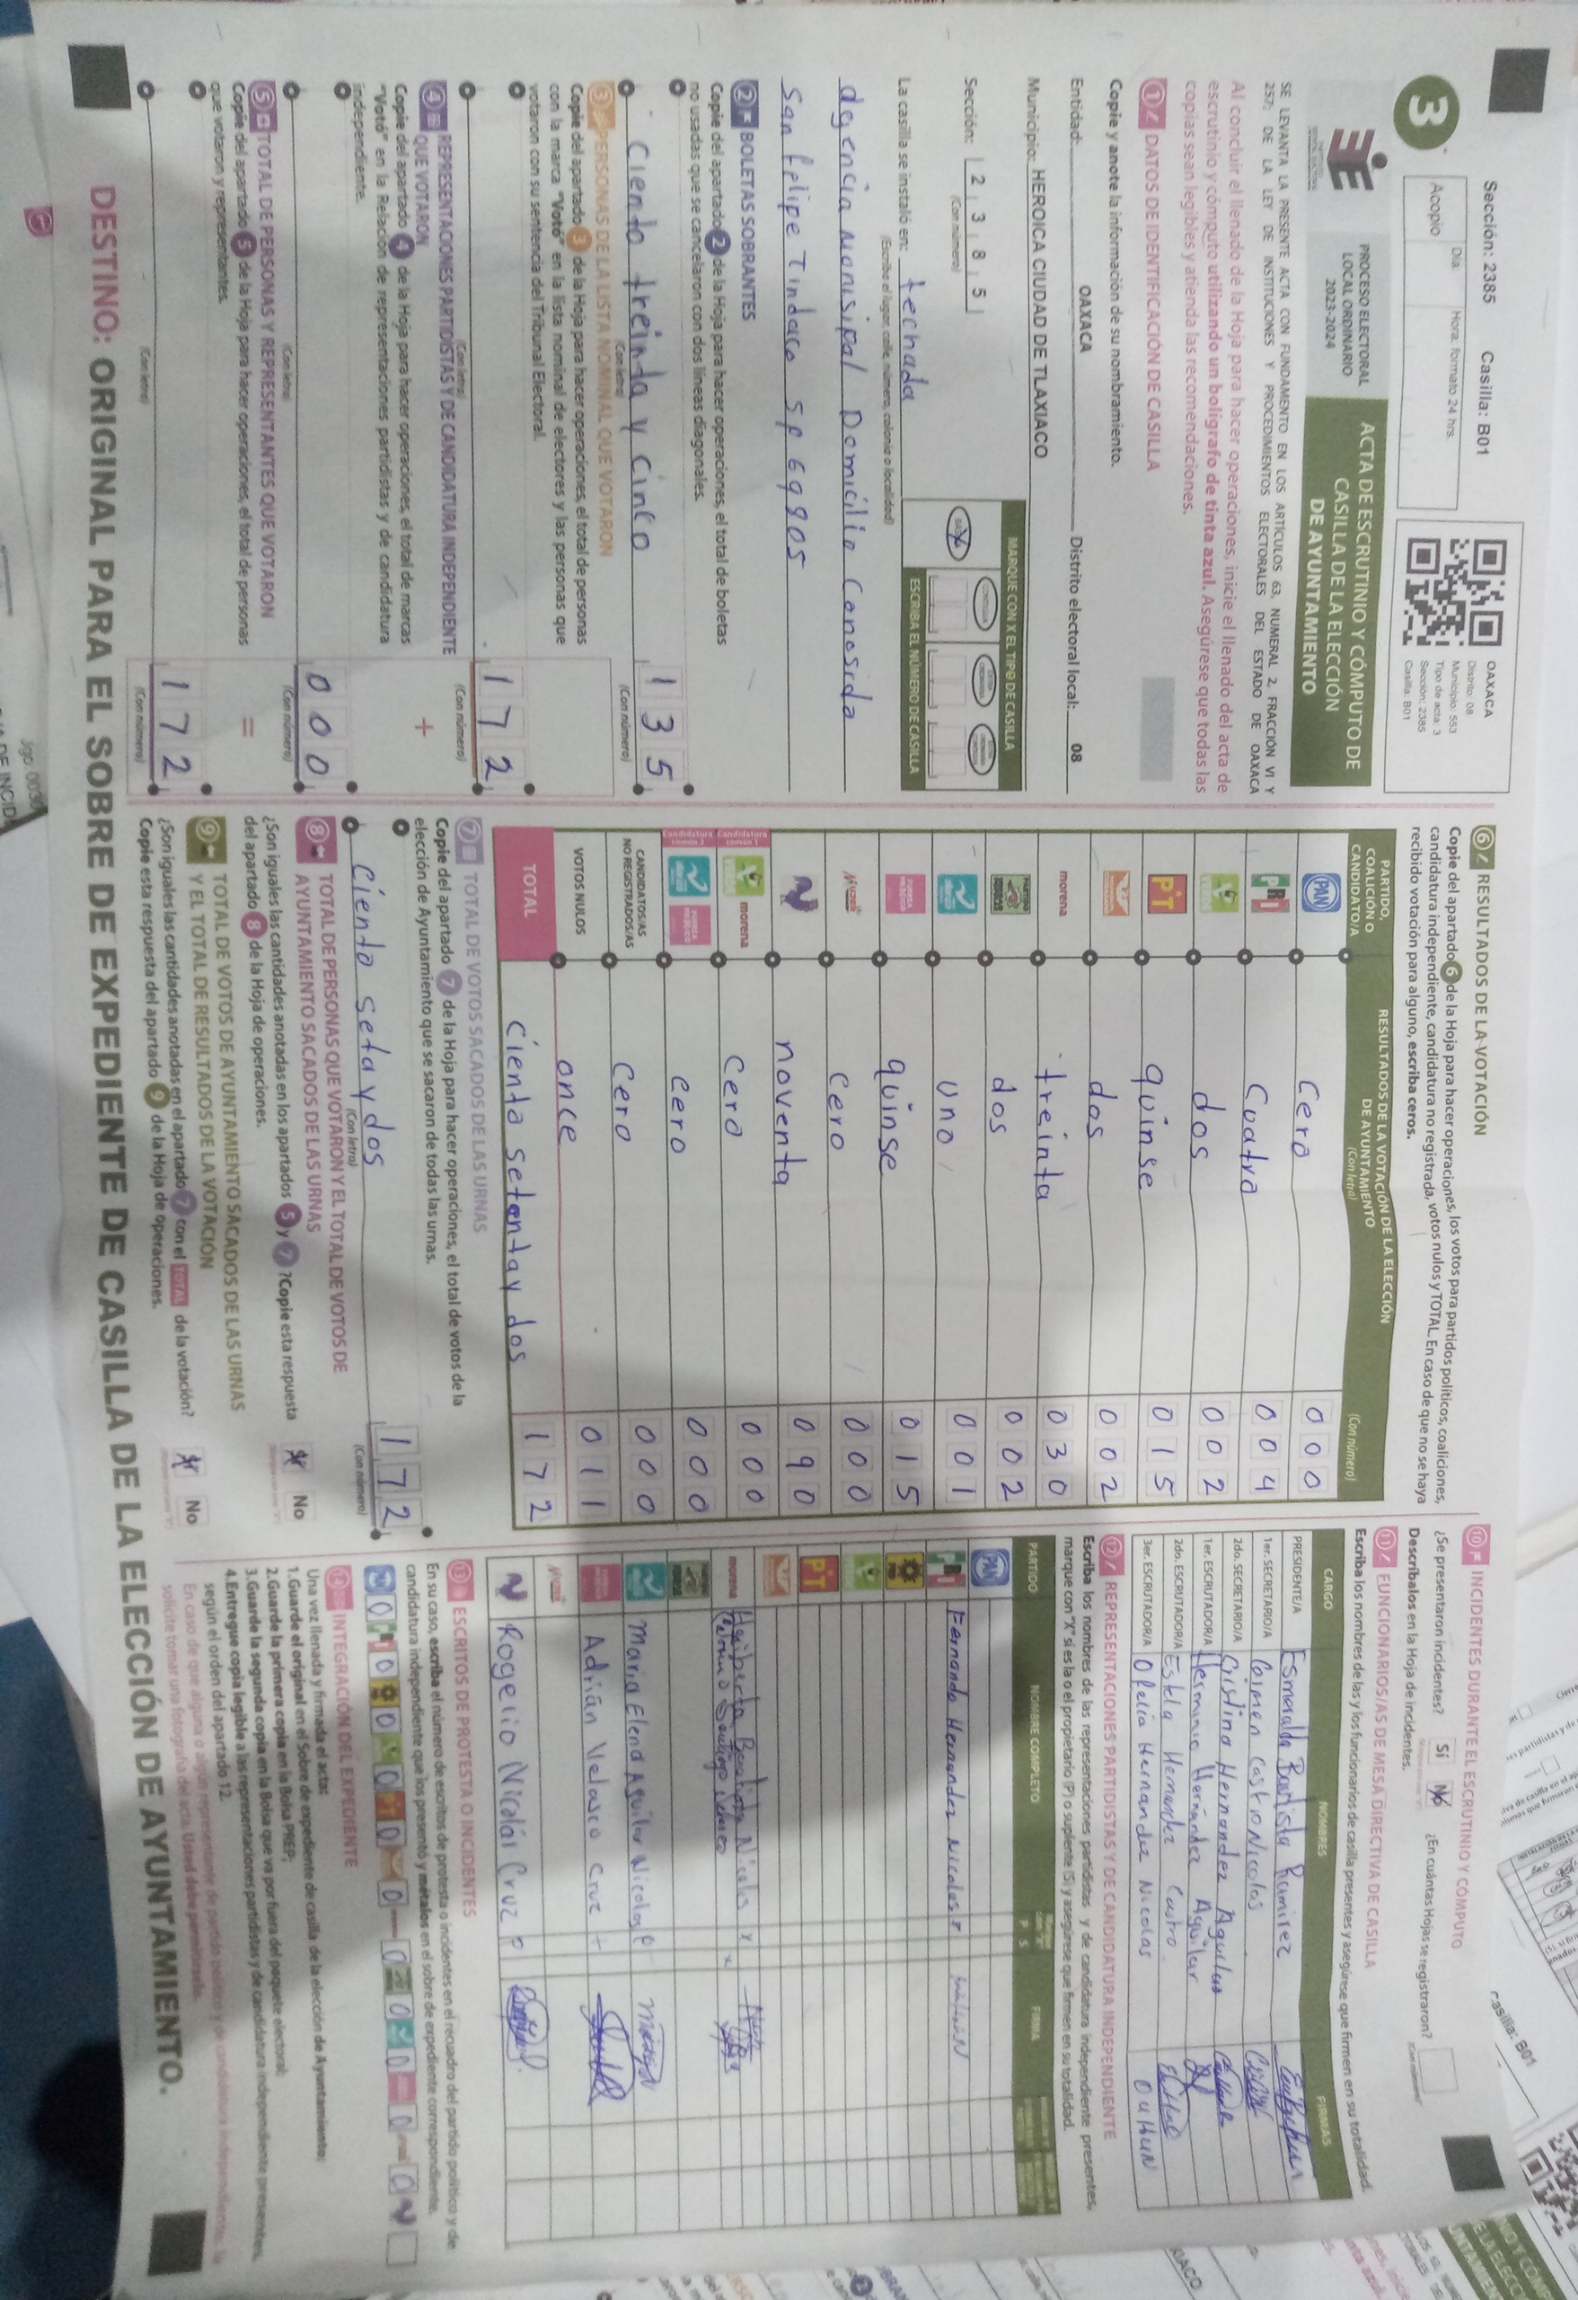 Sección: 2385 Casilla: B01
Día Hora: formato 24 hrs.
Acopio
OAXACA
Distrito: 08
Municipio: 553
Tipo de acta: 3
Sección: 2385
Casilla: B01
3
PROCESO ELECTORAL
LOCAL ORDINARIO
2023-2024
ACTA DE ESCRUTINIO Y CÓMPUTO DE
CASILLA DE LA ELECCIÓN
DE AYUNTAMIENTO
SE LEVANTA LA PRESENTE ACTA CON FUNDAMENTO EN LOS ARTÍCULOS 63, NUMERAL 2, FRACCIÓN VI Y
257; DE LA LEY DE INSTITUCIONES Y PROCEDIMIENTOS ELECTORALES DEL ESTADO DE OAXACA
Al concluir el llenado de la Hoja para hacer operaciones, inicie el llenado del acta de
escrutinio y cómputo utilizando un bolígrafo de tinta azul. Asegúrese que todas las
copias sean legibles y atienda las recomendaciones.
1 DATOS DE IDENTIFICACIÓN DE CASILLA
Copie y anote la información de su nombramiento.
Entidad: OAXACA Distrito electoral local: 08
Municipio: HEROICA CIUDAD DE TLAXIACO
MARQUE CON X EL TIPO DE CASILLA
Sección: 2 3 8 5
(Con número)
ESCRIBA EL NÚMERO DE CASILLA
La casilla se instaló en: techada
(Escriba el lugar, calle, número, colonia o localidad)
agencia Monisipal Domicilio Conosido
san felipe Tindaco SP 69905
2 BOLETAS SOBRANTES
Copie del apartado 2 de la Hoja para hacer operaciones, el total de boletas
no usadas que se cancelaron con dos líneas diagonales.
ciento treinda y cinco 1 3 5
(Con letra) (Con número)
3 PERSONAS DE LA LISTA NOMINAL QUE VOTARON
Copie del apartado 3 de la Hoja para hacer operaciones, el total de personas
con la marca "Votó" en la lista nominal de electores y las personas que
votaron con su sentencia del Tribunal Electoral.
1 7 2
(Con letra) (Con número)
4 REPRESENTACIONES PARTIDISTAS Y DE CANDIDATURA INDEPENDIENTE
QUE VOTARON
+
Copie del apartado 4 de la Hoja para hacer operaciones, el total de marcas
"Votó" en la Relación de representaciones partidistas y de candidatura
independiente.
0 0 0
(Con letra) (Con número)
5 TOTAL DE PERSONAS Y REPRESENTANTES QUE VOTARON
=
Copie del apartado 5 de la Hoja para hacer operaciones, el total de personas
que votaron y representantes.
1 7 2
(Con letra) (Con número)
6 RESULTADOS DE LA VOTACIÓN
Copie del apartado 6 de la Hoja para hacer operaciones, los votos para partidos políticos, coaliciones,
candidatura independiente, candidatura no registrada, votos nulos y TOTAL. En caso de que no se haya
recibido votación para alguno, escriba ceros.
PARTIDO,
COALICIÓN O
CANDIDATO/A
RESULTADOS DE LA VOTACIÓN DE LA ELECCIÓN
DE AYUNTAMIENTO
(Con letra) (Con número)
PAN Cero 0 0 0
PRI Cuatro 0 0 4
dos 0 0 2
PT quinse 0 1 5
dos 0 0 2
morena treinta 0 3 0
dos 0 0 2
uno 0 0 1
quinse 0 1 5
Mujer cero 0 0 0
noventa 0 9 0
morena cero 0 0 0
cero 0 0 0
CANDIDATOS/AS
NO REGISTRADOS/AS cero 0 0 0
VOTOS NULOS once 0 1 1
TOTAL cienta setentay dos 1 7 2
7 TOTAL DE VOTOS SACADOS DE LAS URNAS
Copie del apartado 7 de la Hoja para hacer operaciones, el total de votos de la
elección de Ayuntamiento que se sacaron de todas las urnas.
ciento setay dos 1 7 2
(Con letra) (Con número)
8 TOTAL DE PERSONAS QUE VOTARON Y EL TOTAL DE VOTOS DE
AYUNTAMIENTO SACADOS DE LAS URNAS
¿Son iguales las cantidades anotadas en los apartados 5 y 7 ?Copie esta respuesta
del apartado 8 de la Hoja de operaciones.
No
9 TOTAL DE VOTOS DE AYUNTAMIENTO SACADOS DE LAS URNAS
Y EL TOTAL DE RESULTADOS DE LA VOTACIÓN
¿Son iguales las cantidades anotadas en el apartado 7 con el TOTAL de la votación?
Copie esta respuesta del apartado 9 de la Hoja de operaciones.
No
10 INCIDENTES DURANTE EL ESCRUTINIO Y CÓMPUTO
¿Se presentaron incidentes? Sí No ¿En cuántas Hojas se registraron?
Descríbalos en la Hoja de incidentes.
11 FUNCIONARIOS/AS DE MESA DIRECTIVA DE CASILLA
Escriba los nombres de las y los funcionarios de casilla presentes y asegúrese que firmen en su totalidad.
CARGO NOMBRES FIRMAS
PRESIDENTE/A Esmeralda Bautista Ramirez
1er. SECRETARIO/A Carmen Castro Nicolas
2do. SECRETARIO/A Cristina Hernandez Aguilar
1er. ESCRUTADOR/A Herminio Hernández Aguilar
2do. ESCRUTADOR/A Estela Hernandez Castro
3er. ESCRUTADOR/A Ofelia Hernandez Nicolas
12 REPRESENTACIONES PARTIDISTAS Y DE CANDIDATURA INDEPENDIENTE
Escriba los nombres de las representaciones partidistas y de candidatura independiente presentes,
marque con "X" si es la o el propietario (P) o suplente (S) y asegúrese que firmen en su totalidad.
PARTIDO NOMBRE COMPLETO P S FIRMA
PAN
PRI Fernando Hernandez Nicolas
PT
morena Heriberta Bautista Nicolas x
Maria Elena Aguilar Nicolas P
Adrián Velasco Cruz
Rogelio Nicolás Cruz P
13 ESCRITOS DE PROTESTA O INCIDENTES
En su caso, escriba el número de escritos de protesta o incidentes en el recuadro del partido político y de
candidatura independiente que los presentó y métalos en el sobre de expediente correspondiente.
0 0 0 0 0 0 0 0 0 0
14 INTEGRACIÓN DEL EXPEDIENTE
Una vez llenada y firmada el acta:
1.Guarde el original en el Sobre de expediente de casilla de la elección de Ayuntamiento;
2.Guarde la primera copia en la Bolsa PREP;
3.Guarde la segunda copia en la Bolsa que va por fuera del paquete electoral;
4.Entregue copia legible a las representaciones partidistas y de candidatura independiente presentes,
según el orden del apartado 12.
DESTINO: ORIGINAL PARA EL SOBRE DE EXPEDIENTE DE CASILLA DE LA ELECCIÓN DE AYUNTAMIENTO.